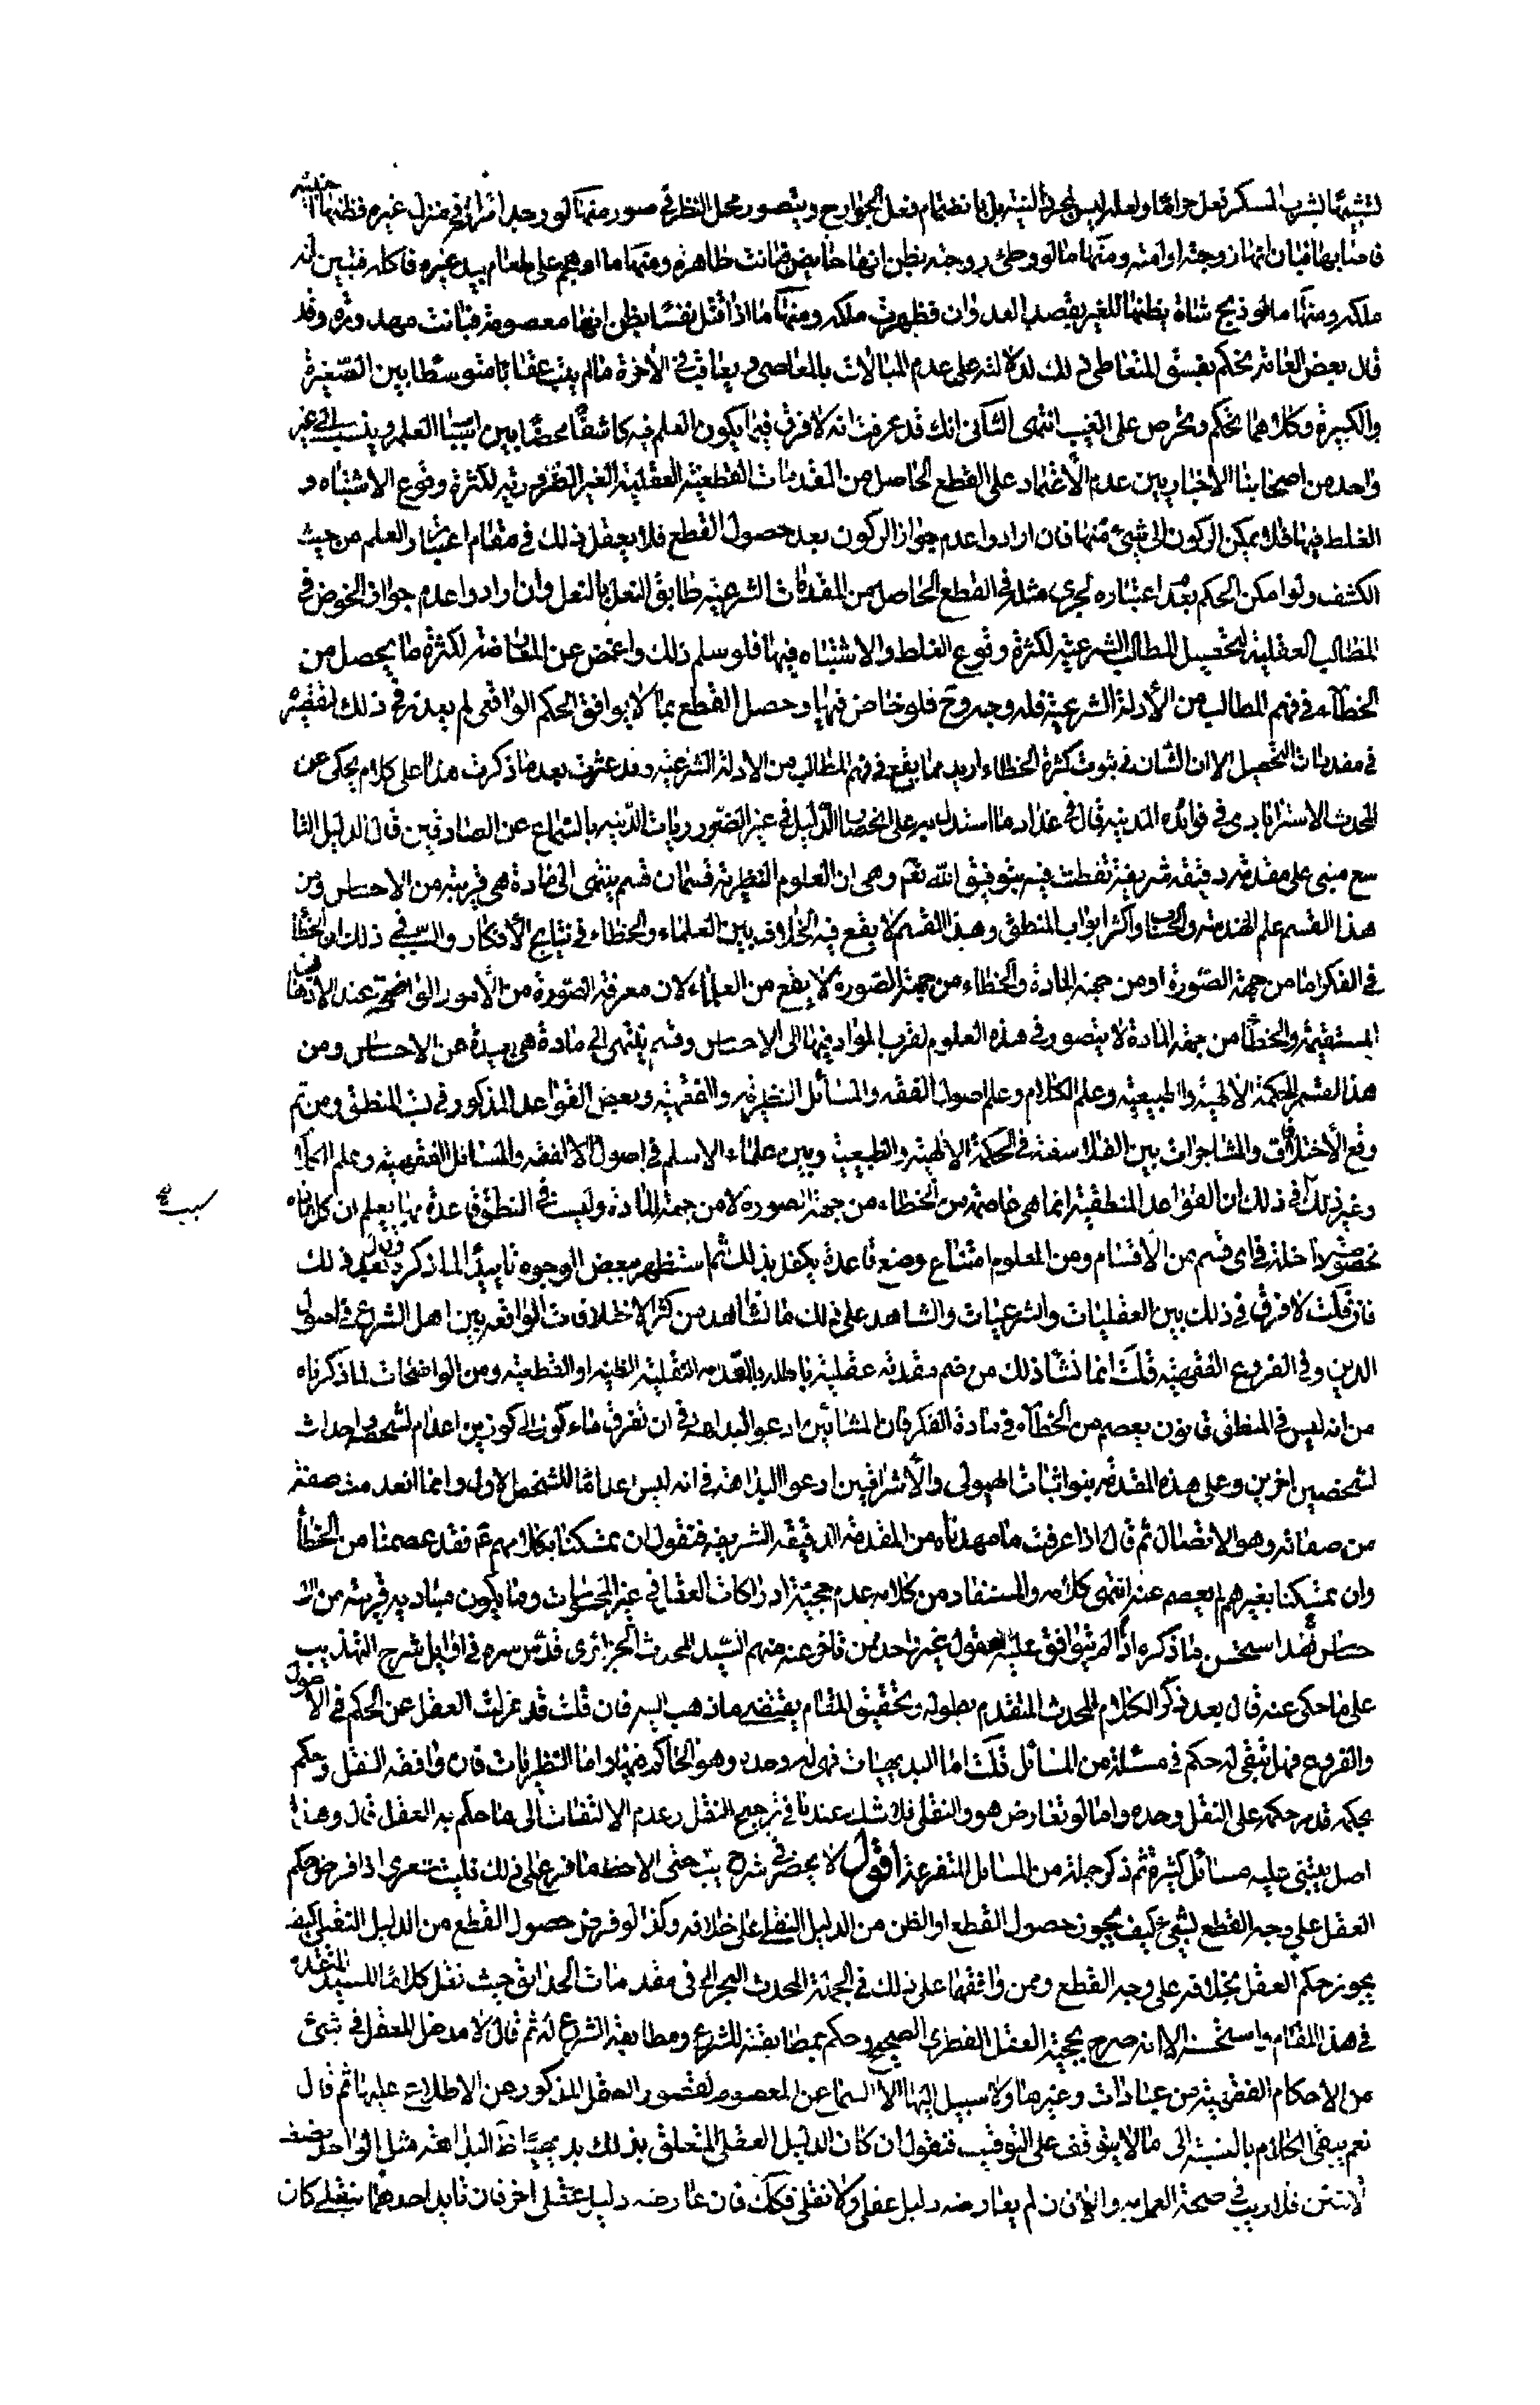 لتشبيهها بشرب المسكر فعل حراما ولعله ليس لمجرد النية بل بانضمام فعل الجوارح ويتصور محل النظر في صور منها ما لو وجد امرأة في منزل غيره فظنها اجنبية
فاصابها فبان انها زوجته او امته ومنها ما لو وطئ زوجته بظن انها حايض فبانت طاهرة ومنها ما لو هجم على طعام بيد غيره فاكله فتبين انه
ملكه ومنها ما لو ذبح شاة يظنها للغير بقصد العدوان فظهرت ملكه ومنها ما اذا قتل نفسا بظن انها معصومة فبانت مهدورة وقد
قال بعض العامة يحكم بفسق المتعاطي ذلك لدلالته على عدم المبالات بالمعاصي ويعاقب في الآخرة ما لم يتب عقابا متوسطا بين الصغيرة
والكبيرة وكلاهما تحكم وتخرص على الغيب انتهى الثاني انك قد عرفت انه لا فرق فيما يكون العلم فيه كاشفا محضا بين اسباب العلم وينسب الى غير
واحد من اصحابنا الاخباريين عدم الاعتماد على القطع الحاصل من المقدمات القطعية العقلية الغير الضرورية لكثرة وقوع الاشتباه و
الغلط فيها فلا يمكن الركون الى شيء منها فان ارادوا عدم جواز الركون بعد حصول القطع فلا يعقل ذلك في مقام اعتبار العلم من حيث
الكشف ولو امكن الحكم بعدم اعتباره لجرى مثله في القطع الحاصل من المقدمات الشرعية طابق النعل بالنعل وان ارادوا عدم جواز الخوض في
المطالب العقلية لتحصيل المطالب الشرعية لكثرة وقوع الغلط والاشتباه فيها فلو سلم ذلك واغمض عن المعارضة لكثرة ما يحصل من
الخطاء في فهم المطالب من الأدلة الشرعية فله وجه وح فلو خاض فيها وحصل القطع بما لا يوافق الحكم الواقعي لم يعذر في ذلك لتقصيره
في مقدمات التحصيل الا ان الشأن في ثبوت كثرة الخطاء ازيد مما يقع في فهم المطالب من الادلة الشرعية وقد عثرت بعد ما ذكرت هذا على كلام يحكى عن
المحدث الاسترابادي في فوائده المدنية قال في عداد ما استدل به على انحصار الدليل في غير الضروريات الدينية بالسماع عن الصادقين قال الدليل التا
سع مبني على مقدمة دقيقة شريفة تفطنت فيه بتوفيق الله تعم وهي ان العلوم النظرية قسمان قسم ينتهي الى مادة هي قريبة من الاحساس ومن
هذا القسم علم الهندسة والحساب واكثر ابواب المنطق وهذا القسم لا يقع فيه الخلاف بين العلماء والخطاء في نتايج الأفكار والسبب في ذلك ان الخطأ
في الفكر اما من جهة الصورة او من جهة المادة والخطاء من جهة الصورة لا يقع من العلماء لان معرفة الصورة من الأمور الواضحة عند الأذهان
المستقيمة والخطأ من جهة المادة لا يتصور في هذه العلوم لقرب المواد فيها الى الاحساس وقسم ينتهي الى مادة هي بعيدة عن الاحساس ومن
هذا القسم الحكمة الإلهية والطبيعية وعلم الكلام وعلم اصول الفقه والمسائل النظرية الفقهية وبعض القواعد المذكور في كتب المنطق ومن ثم
وقع الأختلاف والمشاجرات بين الفلاسفة في الحكمة الإلهية والطبيعية وبين علماء الاسلام في اصول الفقه والمسائل الفقهية وعلم الكلام
وغير ذلك في ذلك ان القواعد المنطقية انما هي عاصمة من الخطاء من جهة الصورة لا من جهة المادة وليست في المنطق قاعدة بها يعلم ان كل مادة
سبب
مخصوصة داخلة في اي قسم من الأقسام ومن المعلوم امتناع وضع قاعدة يكفل بذلك ثم استظهر ببعض الوجوه تأييدا لما ذكره وقال بعد ذلك
فان قلت لا فرق في ذلك بين العقليات والشرعيات والشاهد على ذلك ما نشاهد من كثرة الاختلافات الواقعة بين اهل الشرع في اصول
الدين وفي الفروع الفقهية قلت انما نشأ ذلك من ضم مقدمة عقلية باطلة بالمقدمة النقلية الظنية او القطعية ومن الواضحات لما ذكرناه
من انه ليس في المنطق قانون يعصم من الخطاء في مادة الفكر فان المشائين ادعوا البداهة في ان تفرق ماء كوز الى كوزين اعدام لشخصه واحداث
لشخصين اخرين وعلى هذه المقدمة بنوا اثبات الهيولى والأشراقيين ادعوا البداهة في انه ليس اعداما للشخص الاول وانما انعدمت صفة
من صفاته وهو الاتصال ثم قال اذا عرفت ما مهدناه من المقدمة الدقيقة الشريفة فنقول ان تمسكنا بكلامهم ع فقد عصمنا من الخطأ
وان تمسكنا بغيرهم لم يعصم عنه انتهى كلامه والمستفاد من كلامه عدم حجية ادراكات العقل في غير المحسوسات وما يكون مباديه قريبة من الا
حساس وقد استحسن ما ذكره اذا لم يتوافق عليه العقول غير واحد ممن تاخر عنه منهم السيد المحدث الجزائري قدس سره في اوايل شرح التهذيب
على ما حكى عنه قال بعد ذكر الكلام المحدث المتقدم بطوله وتحقيق المقام يقتضي ما ذهب اليه فان قلت قد عزلت العقل عن الحكم في الاصول
والفروع فهل تبقى له حكم في مسئلة من المسائل قلت اما البديهيات فهي له وحده وهو الحاكم فيها واما النظريات فان وافقه النقل وحكم
بحكمه قدم حكمه على النقل وحده واما لو تعارض هو والنقلي فلا شك عندنا في ترجيح النقل وعدم الالتفات الى ما حكم به العقل قال وهذا
اصل يبتنى عليه مسائل كثيرة ثم ذكر جملة من المسائل المتفرعة اقول لا يحضرني شرح يب حتى الاحظ ما فرع على ذلك فليت شعري اذا فرض حكم
العقل على وجه القطع بشيء كيف يجوز حصول القطع او الظن من الدليل النقلي على خلافه وكذا لو فرض حصول القطع من الدليل النقلي كيف
يجوز حكم العقل بخلافه على وجه القطع وممن وافقهما على ذلك في الجملة المحدث البحراني في مقدمات الحدايق حيث نقل كلاما للسيد المتقدم
في هذا المقام واستحسنه الا انه صرح بحجية العقل الفطري الصحيح وحكم بمطابقته للشرع ومطابقة الشرع له ثم قال لا مدخل للعقل في شيء
من الاحكام الفقهية من عبادات وغيرها ولا سبيل اليها الا السماع عن المعصوم لقصور العقل المذكور عن الاطلاع عليها ثم قال
نعم يبقى الكلام بالنسبة الى ما لا يتوقف على التوقيف فنقول ان كان الدليل العقلي المتعلق بذلك بديهيا ظ البداهة مثل الواحد نصف
الاثنين فلا ريب في صحة العمل به والا فان لم يعارضه دليل عقلي ولا نقلي فكك فان عارضه دليل عقلي اخر فان تايد احدهما بنقلي كان